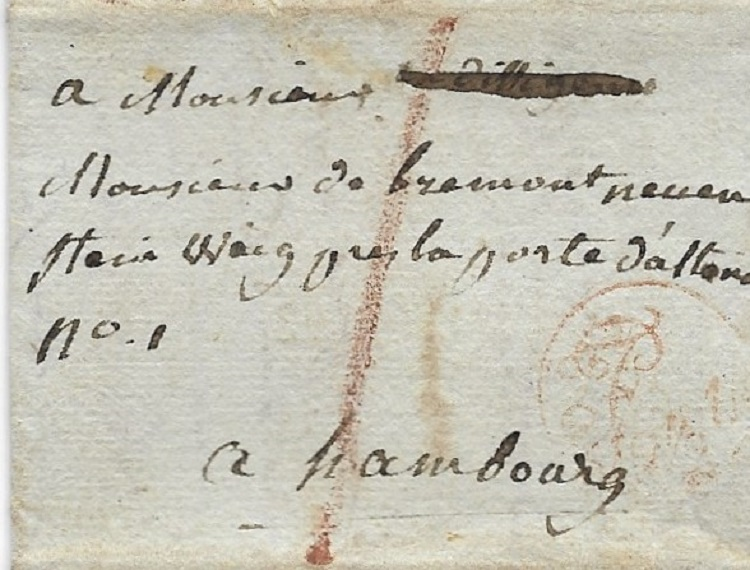 a Monsieur
Monsieur de bremont neuen
stein Weig pres la porte d'altena
no. 1
a hambourg